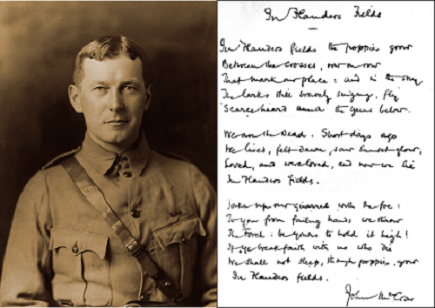 In Flanders Fields
In Flanders fields the poppies grow
Between the crosses, row on row
That mark our place: and in the sky
The larks still bravely singing, fly
Scarce heard amid the guns below.
We are the Dead. Short days ago
We lived, felt dawn, saw sunset glow,
Loved, and were loved, and now we lie
In Flanders fields.
Take up our quarrel with the foe:
To you from failing hands we throw
The torch: be yours to hold it high!
If ye break faith with us who die
We shall not sleep, though poppies grow
In Flanders fields.
John McCrae